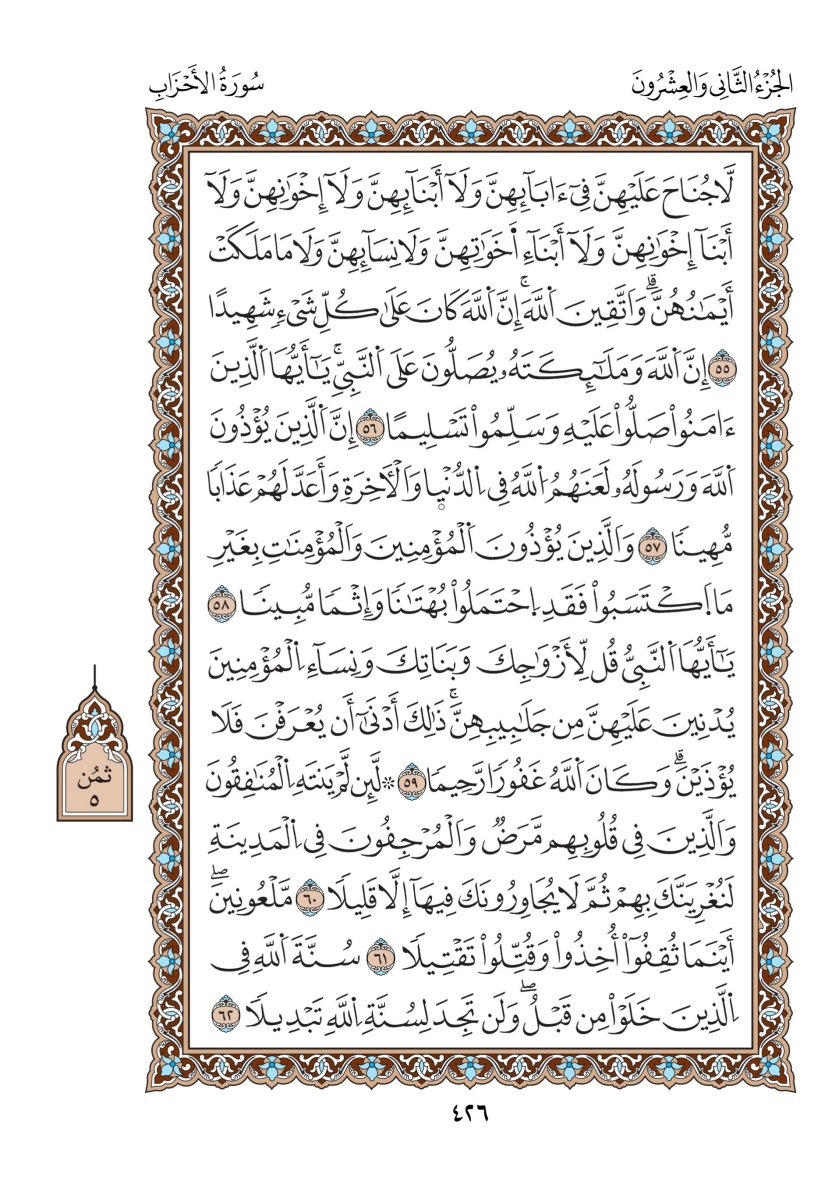 الجُزْءُ الثَّانِي وَالعِشْرُونَ
سُورَةُ الأَحْزَابِ
لَّا جُنَاحَ عَلَيْهِنَّ فِىٓ ءَابَآئِهِنَّ وَلَآ أَبْنَآئِهِنَّ وَلَآ إِخْوَٰنِهِنَّ وَلَآ
أَبْنَآ إِخْوَٰنِهِنَّ وَلَآ أَبْنَآءِ اَ۬خَوَٰتِهِنَّ وَلَا نِسَآئِهِنَّ وَلَا مَا مَلَكَتْ
أَيْمَٰنُهُنَّۗ وَاتَّقِينَ اَللَّهَۚ إِنَّ اَللَّهَ كَانَ عَلَىٰ كُلِّ شَىْءٍ شَهِيدًا
٥٥ إِنَّ اَللَّهَ وَمَلَٰٓئِكَتَهُۥ يُصَلُّونَ عَلَى اَلنَّبِيِّۚ يَٰٓأَيُّهَا اَلَّذِينَ
ءَامَنُواْ صَلُّواْ عَلَيْهِ وَسَلِّمُواْ تَسْلِيمًا ٥٦ إِنَّ اَلَّذِينَ يُؤْذُونَ
اَللَّهَ وَرَسُولَهُۥ لَعَنَهُمُ اُللَّهُ فِى اِلدُّنْي۪ا وَالْأٓخِرَةِ وَأَعَدَّ لَهُمْ عَذَابًا
مُّهِينًا ٥٧ وَالَّذِينَ يُؤْذُونَ اَلْمُؤْمِنِينَ وَالْمُؤْمِنَٰتِ بِغَيْرِ
مَا اَ۪كْتَسَبُواْ فَقَدِ اِ۪حْتَمَلُواْ بُهْتَٰنًا وَإِثْمًا مُّبِينًا ٥٨
يَٰٓأَيُّهَا اَلنَّبِيُّ قُل لِّأَزْوَٰجِكَ وَبَنَاتِكَ وَنِسَآءِ اِلْمُؤْمِنِينَ
يُدْنِينَ عَلَيْهِنَّ مِن جَلَٰبِيبِهِنَّۚ ذَٰلِكَ أَدْنَىٰٓ أَن يُعْرَفْنَ فَلَا
يُؤْذَيْنَۗ وَكَانَ اَللَّهُ غَفُورًا رَّحِيمًا ٥٩ ۞ لَّئِن لَّمْ يَنتَهِ اِلْمُنَٰفِقُونَ
وَالَّذِينَ فِى قُلُوبِهِم مَّرَضٌ وَالْمُرْجِفُونَ فِى اِلْمَدِينَةِ
لَنُغْرِيَنَّكَ بِهِمْ ثُمَّ لَا يُجَاوِرُونَكَ فِيهَآ إِلَّا قَلِيلًا ٦٠ مَّلْعُونِينَۖ
أَيْنَمَا ثُقِفُوٓاْ أُخِذُواْ وَقُتِّلُواْ تَقْتِيلًا ٦١ سُنَّةَ اَللَّهِ فِى
اِلَّذِينَ خَلَوْاْ مِن قَبْلُۖ وَلَن تَجِدَ لِسُنَّةِ اِللَّهِ تَبْدِيلًا ٦٢
ثُمُن
٥
٤٢٦